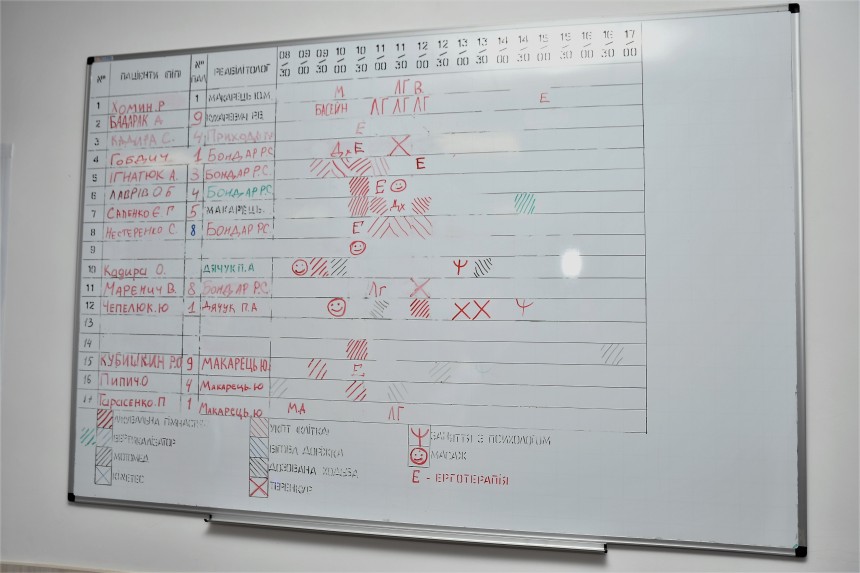 № ПАЦІЄНТИ (ПІП) № ПАЛ РЕАБІЛІТОЛОГ 08/30 09/00 09/30 10/00 10/30 11/00 11/30 12/00 12/30 13/00 13/30 14/00 14/30 15/00 15/30 16/00 16/30 17/00
1 ХОМИН.Р 1 МАКАРЕЦЬ Ю.М М ЛГ В Е
2 БАДАРАК А 9 БАСЕЙН ЛГ ЛГ ЛГ
3 КАДИРА С. 4 Е
4 ГОБДИЧ. 1 БОНДАР Р.С Дх Е Х
5 ІГНАТЮК А. 3 БОНДАР Р.С. Е
6 ЛАВРІВ О.Б 4 БОНДАР Р.С. Е
7 САЛЕНКО Є.Г 5 МАКАРЕЦЬ. Дх
8 НЕСТЕРЕНКО С. 8 БОНДАР Р.С Е
9
10 Кадира О. ДЯЧУК П.А Ψ
11 МАРЕНИЧ В. 8 БОНДАР Р.С. ЛГ Х
12 ЧЕПЕЛЮК.Ю 1 ДЯЧУК П.А Х Х Ψ
13
14
15 КУБИШКІН Р.О 9 МАКАРЕЦЬ Ю. Е
16 ПИПИЧ О 4 МАКАРЕЦЬ.Ю
17 Тарасенко.П 1 МАКАРЕЦЬ.Ю МД ЛГ
ЛІКУВАЛЬНА ГІМНАСТИКА УКПТ (КЛІТКА) Ψ ЗАНЯТТЯ З ПСИХОЛОГОМ
ВЕРТИКАЛІЗАТОР БІГОВА ДОРІЖКА МАСАЖ
МОТОМЕД ДОЗОВАНА ХОДЬБА Е - ЕРГОТЕРАПІЯ
КІНЕТЕС ПЕРЕКУР